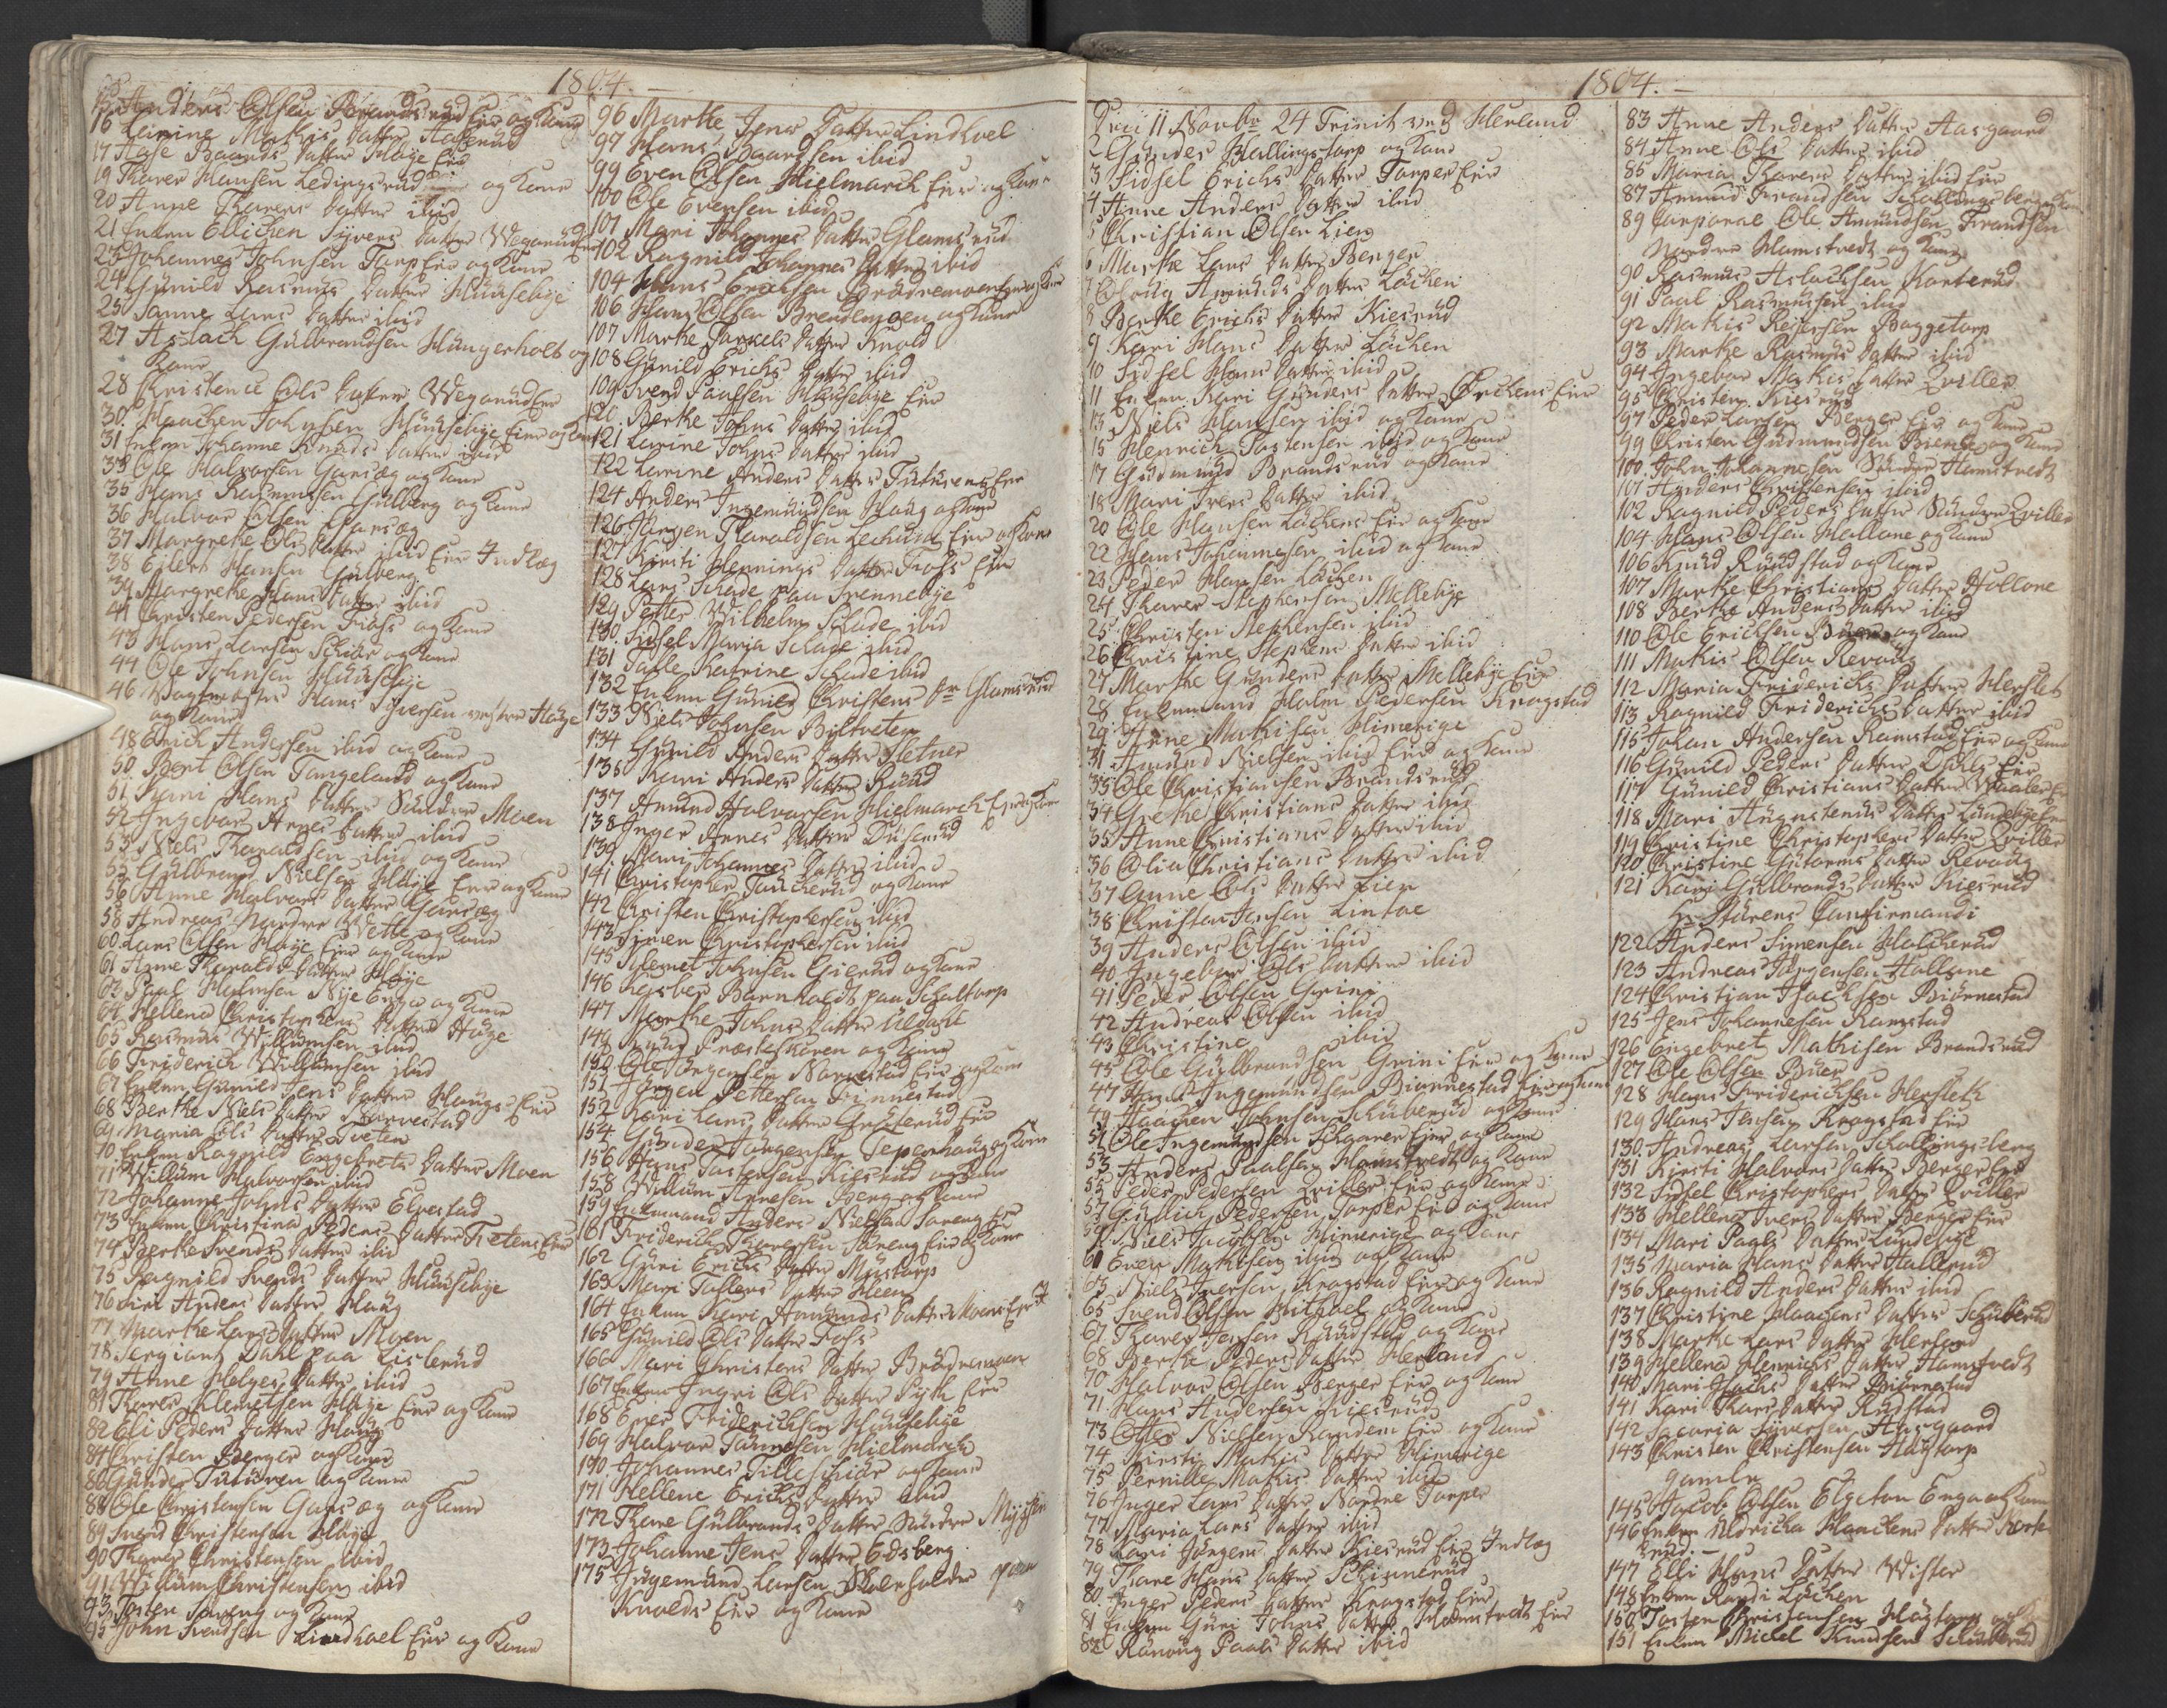 1804.
15 Anders Olsen Brandsrud Eie og Kone
16 Larine Mathis Datter Aaserud
17 Aase Baards Datter Høye Eie
19 Thorer Hansen Ledingsrud og Kone
20 Anne Thorers Datter ibid
21 Enken Ellichen Syvers Datter Wegerud
23 Johannes Johnsen Torp Eie og Kone
24 Gunild Rasmus Datter Huusebye
25 Sanne Lars Datter ibid
27 Asslach Gulbrandsen Hungerholt og
Kone
28 Christence Ols Datter Wegerud Eie
30 Haachen Johnsen Huusebye Eie og Kone
31 Enken Johanne Knuds Datter ibid
33 Ole Halvorsen Garseg og Kone
35 Hans Rasmusen Gulberg og Kone
36 Halvor Olsen Garseg
37 Margrethe Ols Datter ibid Eie Indlæg
38 Eilert Hansen Gulberg
39 Margrethe Hans Datter ibid
41 Christen Pedersen Foss og Kone
43 Hans Larsen Schiør og Kone
44 Ole Johnsen Huusebye
46 Hans Syversen vestre Høye
og Kone
48 Erich Andersen ibid og Kone
50 Bent Olsen Tangeland og Kone
51 Kari Hans Datter Søndre Moen
52 Ingebor Arnes Datter ibid
53 Niels Thoraldsen ibid og Kone
55 Gulbrand Nielsen Høye Eie og Kone
56 Anne Halvors Datter Garseg
58 Andreas Nordre Wette og Kone
60 Lars Olsen Høye Eie og Kone
61 Anne Thoralds Datter Høye
63 Paul Hansen Nye Enge og Kone
64 Hellene Christophers Datter Høye
65 Rasmus Willumsen ibid
66 Friderich Willumsen ibid
67 Enken Gunild Jens Datter Haugs Eie
68 Berthe Niels Datter Narvestad
69 Maria Ols Datter Tveten
70 Enken Ragnild Engebrets Datter Moen
71 Willum Halvorsen ibid
72 Johanne Johns Datter Elvestad
73 Enken Christina Peders Datter Tvetens Eie
74 Berthe Svends Datter ibid
75 Ragnild Svends Datter Huusebye
76 Siri Anders Datter Haug
77 Marthe Lars Datter Moen
78 Sergiant Dahl paa Lislerud
79 Anne Helges Datter ibid
81 Thorer Clemetsen Høye Eie og Kone
82 Eli Peders Datter Haug
84 Christen Berger og Kone
86 Gunder Tuturen og Kone
88 Ole Christensen Garseg og Kone
89 Svend Christensen Høye
90 Thorer Christensen ibid
91 Willum Christensen ibid
93 Torsten Sareng og Kone
95 John Svendsen Lindhoel Eie og Kone
96 Marthe Jens Datter Lindhoel
97 Hans Baardsen ibid
99 Even Olsen Hielmarck Eie og Kone
100 Ole Evensen ibid
101 Mari Johannes Datter Glomsrud
102 Ragnild Johannes Datter ibid
104 Hans Erichsen Brødremoen Eie og Kone
106 Hans Olsen Brendemoen og Kone
107 Marthe Torkels Datter Knold
108 Gunild Erichs Datter ibid
109 Svend Paulsen Huusebye Eie
120 Berthe Johns Datter ibid
121 Larine Johns Datter ibid
122 Karine Anders Datter Tuturens Eie
124 Anders Ingemundsen Haug og Kone
126 Jørgen Tharaldsen Lechum Eie og Kone
127 Kirsti Hennings Datter Foss Eie
128 Lars Schade paa Svennebye
129 Petter Wilhelm Schade ibid
130 Sidsel Maria Schade ibid
131 Talle Katrine Schade ibid
132 Enken Gunild Christens Dr Glomsrud
133 Niels Johnsen Biltveten
134 Gunild Anders Datter Sletner
135 Kari Anders Datter Ruud
137 Amund Halvorsen Hielmarck Eie og Kone
138 Inger Arnes Datter Duserud
139 Mari Johannes Datter ibid
141 Christopher Tancherud og Kone
142 Christen Christophersen ibid
143 Simen Christophersen ibid
145 Clemet Johnsen Gierud og Kone
146 Barnholdt paa Schaltorp
147 Marthe Johns Datter
149 Knud Præsteskoven og Kone
150 Ole Jørgensen Narvestad Eie og Kone
151 Jørgen Pettersen Finnestad
152 Kari Lars Datter Eie
154 Gunder Jørgensen Tepenhaug og Kone
156 Hans Torstensen Kiesrud og Kone
158 Willum Arnesen Berg og Kone
159 Enkemand Anders Nielsen Sareng Eie
161 Friderich Thorersen Sareng Eie og Kone
162 Guri Erichs Datter Mustorp
163 Mari Tollers Datter Heen
164 Enken Kari Amunds Datter Moens Eie
165 Gunild Ols Datter Foss
166 Mari Christens Datter Brødremoen
167 Enken Ingri Ols Datter Eie
168 Ener Friderichsen Huusebye
169 Halvor Hielmarck
170 Johannes Tilleschiør og Kone
171 Hellene Erichs Datter ibid
172 Thore Gulbrands Datter Søndre
173 Johanne Jens Datter Edsberg
175 Ingemund Larsen Skoleholder paa
Knolds Eie og Kone
1804.
Den 11 Novbr 24 Trinit ved Herland
2 Gunder Hallingstorp og Kone
3 Sidsel Erichs Datter Torper Eie
4 Anne Anders Datter ibid
5 Christian Olsen Lien
6 Marthe Lars Datter Berger
7 Oloug Amunds Datter Løchen
8 Berthe Erichs Datter Kiesrud
9 Kari Hans Datter Løchen
10 Sidsel Hans Datter ibid
11 Enken Kari Gunders Datter Eie
13 Niels Hansen ibid og Kone
15 Henrich Tostensen ibid og Kone
17 Gudmund Brandsrud og Kone
18 Mari Ivers Datter ibid
20 Ole Hansen Løchens Eie og Kone
22 Hans Johannesen ibid og Kone
23 Peder Hansen Løchen
24 Thorer Stephensen Mellebye
25 Christen Stephensen ibid
26 Christine Stephens Datter ibid
27 Marthe Gunders Datter Mellebye Eie
28 Enkemand Holm Pedersen Kragstad
29 Arne Mathisen Himerige
31 Amund Nielsen ibid Eie og Kone
33 Ole Christiansen Brandsrud
34 Grethe Christians Datter ibid
35 Anne Christians Datter ibid
36 Olia Christians Datter ibid
37 Anne Ols Datter Lien
38 Christen Jensen Lintoe
39 Anders Olsen ibid
40 Ingebor Ols Datter ibid
41 Peder Olsen Grini
42 Andreas Olsen ibid
43 Christine ibid
45 Ole Gulbrandsen Grini Eie og Kone
47 Hans Ingemundsen Biørnestad Eie og Kone
49 Haachen Johnsen Schuberud og Kone
51 Ole Ingemundsen Eie og Kone
53 Anders Paalsen Hamstvedt og Kone
55 Peder Pedersen Qviller Eie og Kone
57 Gullich Pedersen Torper Eie og Kone
59 Niels Jacobsen Himerige og Kone
61 Even Mathisen ibid og Kone
63 Niels Iversen Kragstad Eie og Kone
65 Svend Olsen og Kone
67 Thorer Jensen Ruudstad og Kone
68 Berthe Peders Datter Herland
70 Halvor Olsen Berger Eie og Kone
71 Hans Andersen Kiesrud
73 Otter Nielsen Eie og Kone
74 Kirsti Mathis Datter Himerige
75 Pernille Mathis Datter ibid
76 Inger Lars Datter Nordre Torper
77 Maria Lars Datter ibid
78 Kari Jørgens Datter Kiesrud Eie Indlæg
79 Thore Hans Datter Schinnerud
80 Inger Peders Datter Kragstad Eie
81 Enken Guri Johns Datter Hamstvedt Eie
82 Ranoug Paals Datter ibid
83 Anne Anders Datter Aasgaard
84 Anne Ols Datter ibid
85 Maria Thorers Datter ibid Eie
87 Amund Frandsen Schallingsberg og Kone
89 Corporal Ole Amundsen Frandsen
Nordre Hamstvedt og Kone
90 Rasmus Aslachsen Korterud
91 Paul Rasmussen ibid
92 Mathis Reiersen Baggetorp
93 Marthe Rasmus Datter ibid
94 Ingebor Mathis Datter Qviller
95 Christen Kiesrud
97 Peder Larsen Berger Eie og Kone
99 Christen Gudmundsen og Kone
100 John Johannesen Søndre Hamstvedt
101 Anders Christensen ibid
102 Ragnild Peders Datter Søndre Qviller
104 Hans Olsen Hallone og Kone
106 Knud Ruudstad og Kone
107 Marthe Christians Datter Hollone
108 Berthe Anders Datter ibid
110 Ole Erichsen Buer og Kone
111 Mathis Olsen Revoug
112 Maria Friderichs Datter Hersleth
113 Ragnild Friderichs Datter ibid
115 Johan Andersen Ramstad Eie og Kone
116 Gunild Peders Datter Eie
117 Gunild Christians Datter
118 Mari Augustenus Datter Lundebye
119 Christine Christophers Datter Qviller
120 Christine Gutorms Datter Revoug
121 Kari Gulbrands Datter Kiesrud
Hr Stürens Confirmandi
122 Anders Simensen Holcherud
123 Andreas Jørgensen Hallone
124 Christian Isachsen Biørnestad
125 Jens Johannesen Ramstad
126 Engebret Mathisen Brandsrud
127 Ole Olsen Buer
128 Hans Friderichsen Hersleth
129 Hans Jensen Kragstad Eie
130 Andreas Larsen Schallingsberg
131 Kirsti Halvors Datter Berger Eie
132 Sidsel Christophers Datter Qviller
133 Hellene Ivers Datter Berger Eie
134 Mari Paals Datter Lundebye
135 Maria Hans Datter Hallerud
136 Ragnild Anders Datter ibid
137 Christine Haagens Datter Schuberud
138 Marthe Lars Datter Herland
139 Hellene Henrichs Datter Hamstvedt
140 Mari Isachs Datter Biørnestad
141 Kari Thors Datter Rudstad
142 Zacaria Syversen Aasgaard
143 Christen Christensen Haugtorp
gamle
145 Jacob Olsen Elgetun Enga og Kone
146 Enken Uldricha Planchens Datter Korte
rud.
147 Elli Hans Datter Wister
148 Enken Randi Løchen
150 Tosten Christensen Haugtorp og Kone
151 Enken Michel Knudsens Schuberud